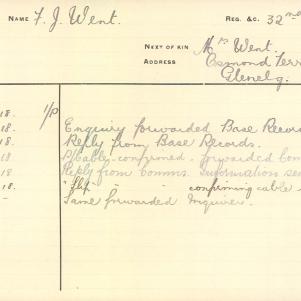 NAME F. J. Went. REG. &C. 32nd
NEXT OF KIN Mrs Went.
ADDRESS Esmond Terr
Glenelg.
18. 1/P
18. Enquiry forwarded Base Record
18. Reply from Base Records.
18 P/Cable confirmed. forwarded Com
18 Reply from Comms. Information sen
18. " " confirming cable
– Same forwarded Inquirer.